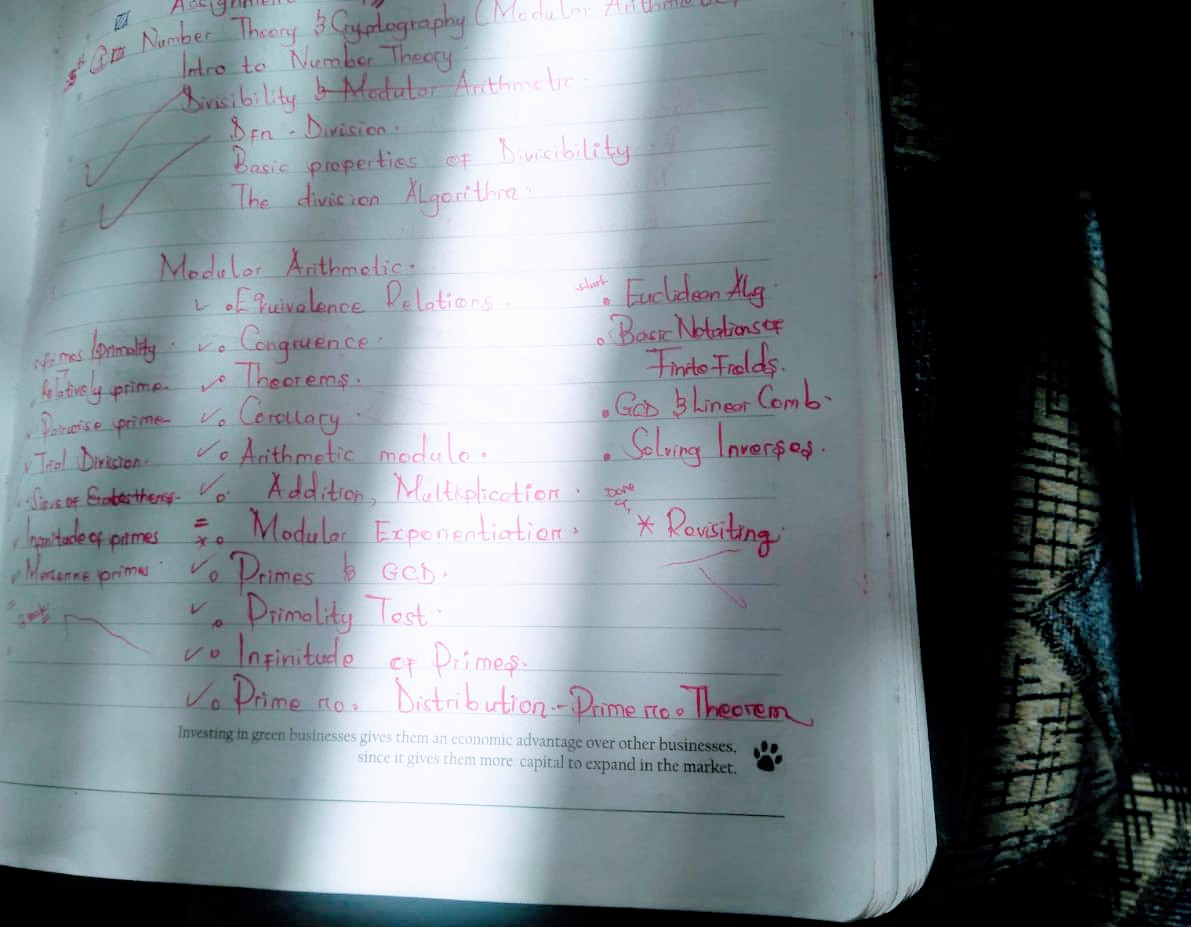 Assignment
Number Theory & Cryptography (Modular Arithmetic)
Intro to Number Theory
Divisibility & Modular Arithmetic.
Dfn - Division.
Basic properties of Divisibility.
The division Algorithm.
Modular Arithmetic.
• Equivalence Relations.
• Congruence.
• Theorems.
• Corollary.
• Arithmetic modulo.
• Addition, Multiplication.
• Modular Exponentiation.
• Primes & GCD.
• Primality Test.
• Infinitude of Primes.
• Prime no. Distribution - Prime no. Theorem
Primes / primality.
Relatively prime
Pairwise prime
Trial Division.
Sieve of
Infinitude of primes
Mersenne primes
start
• Euclidean Alg.
• Basic Notations of
Finite Fields.
• GCD & Linear Comb.
• Solving Inverses.
Done
* Revisiting.
Investing in green businesses gives them an economic advantage over other businesses,
since it gives them more capital to expand in the market.